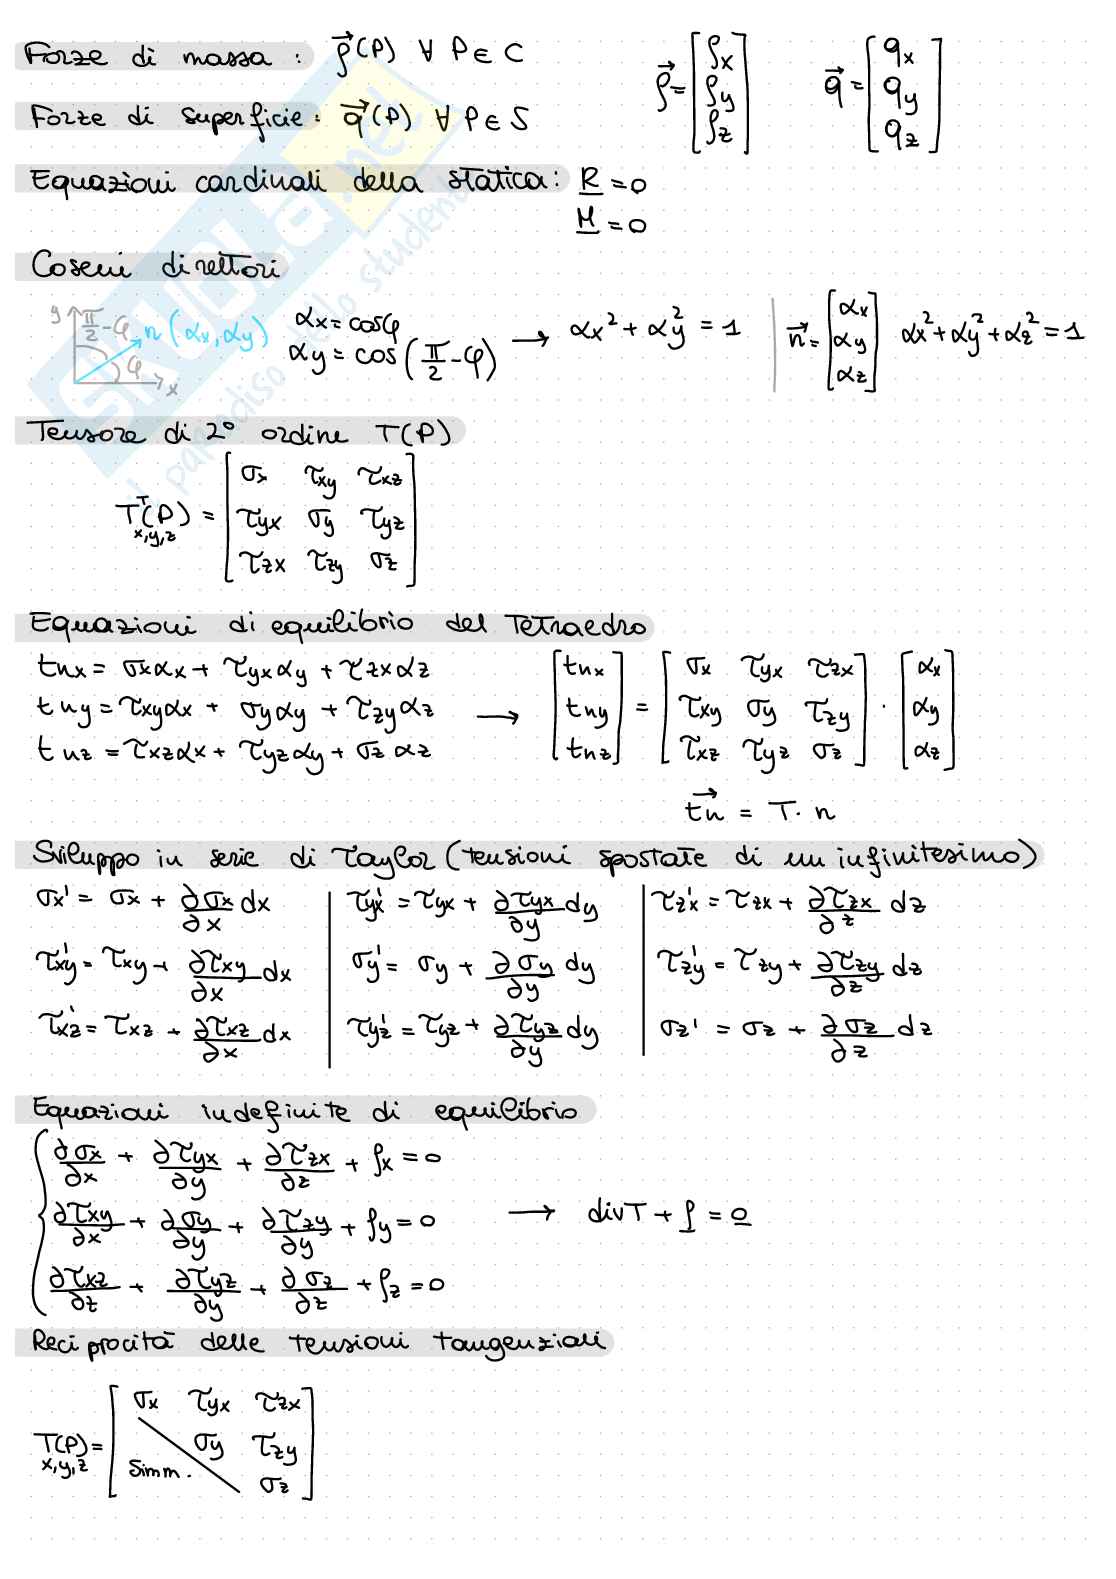 Forze di massa : ρ⃗(P) ∀ P∈C
ρ⃗ = [ρx ρy ρz]
q⃗ = [qx qy qz]
Forze di superficie: q⃗(P) ∀ P∈S
Equazioni cardinali della statica: R = 0
M = 0
Coseni direttori
y π/2 - φ n (αx, αy) φ x
αx = cosφ
αy = cos(π/2 - φ) → αx² + αy² = 1
n⃗ = [αx αy αz] αx² + αy² + αz² = 1
Tensore di 2° ordine T(P)
Tᵀ(P) x,y,z =
σx τxy τxz
τyx σy τyz
τzx τzy σz
Equazioni di equilibrio del Tetraedro
tnx = σxαx + τyxαy + τzxαz
tny = τxyαx + σyαy + τzyαz
tnz = τxzαx + τyzαy + σzαz
→ [tnx tny tnz] =
σx τyx τzx
τxy σy τzy
τxz τyz σz
· [αx αy αz]
t⃗n = T · n
Sviluppo in serie di Taylor (tensioni spostate di un infinitesimo)
σx' = σx + ∂σx/∂x dx | τyx' = τyx + ∂τyx/∂y dy | τzx' = τzx + ∂τzx/∂z dz
τxy' = τxy + ∂τxy/∂x dx | σy' = σy + ∂σy/∂y dy | τzy' = τzy + ∂τzy/∂z dz
τxz' = τxz + ∂τxz/∂x dx | τyz' = τyz + ∂τyz/∂y dy | σz' = σz + ∂σz/∂z dz
Equazioni indefinite di equilibrio
∂σx/∂x + ∂τyx/∂y + ∂τzx/∂z + ρx = 0
∂τxy/∂x + ∂σy/∂y + ∂τzy/∂y + ρy = 0 → divT + ρ = 0
∂τxz/∂z + ∂τyz/∂y + ∂σz/∂z + ρz = 0
Reciprocità delle tensioni tangenziali
T(P) x,y,z =
σx τyx τzx
σy τzy
Simm. σz
SKUOLA.net
il paradiso dello studente